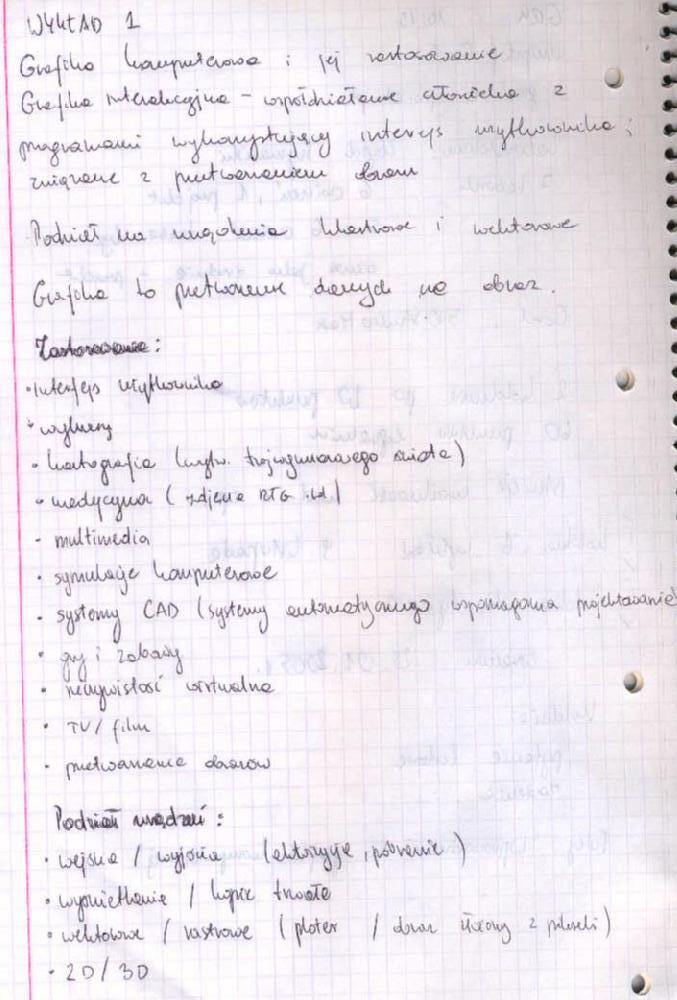 WYKŁAD 1
Grafika komputerowa i jej zastosowanie
Grafika interakcyjna - współdziałanie człowieka z
programami wykorzystujący interfejs użytkownika;
związane z przetwarzaniem obrazu
Podział na urządzenia rastrowe i wektorowe
Grafika to przetworzenie danych na obraz.
Zastosowanie:
• interfejs użytkownika
• wykresy
• kartografia ( trójwymiarowego świata)
• medycyna ( zdjęcia RTG itd)
- multimedia
• symulacje komputerowe
• systemy CAD (systemy automatycznego wspomagania projektowanie)
• gry i zabawy
• rzeczywistość wirtualna
• TV / film
• przetwarzanie obrazów
Podział urządzeń:
• wejścia / wyjścia (, pobranie)
• wyświetlanie / kopie trwałe
• wektorowe / rastrowe ( ploter / obraz złożony z pikseli)
• 2D / 3D